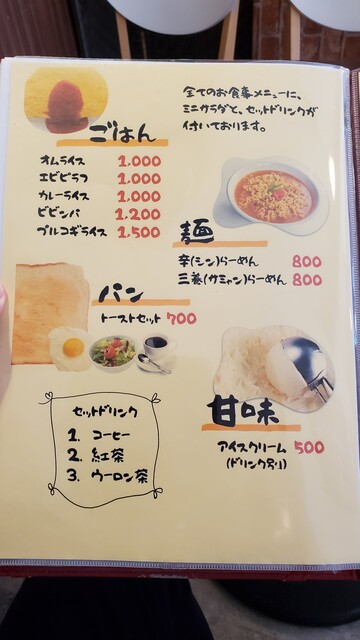 全てのお食事メニューに、
ミニサラダと、セットドリンクが
付いております。
ごはん
オムライス 1,000
エビピラフ 1,000
カレーライス 1,000
ビビンバ 1,200
プルコギライス 1,500
麺
辛(シン)らーめん 800
三養(サミャン)らーめん 800
パン
トーストセット 700
甘味
アイスクリーム 500
(ドリンク別)
セットドリンク
1. コーヒー
2. 紅茶
3. ウーロン茶